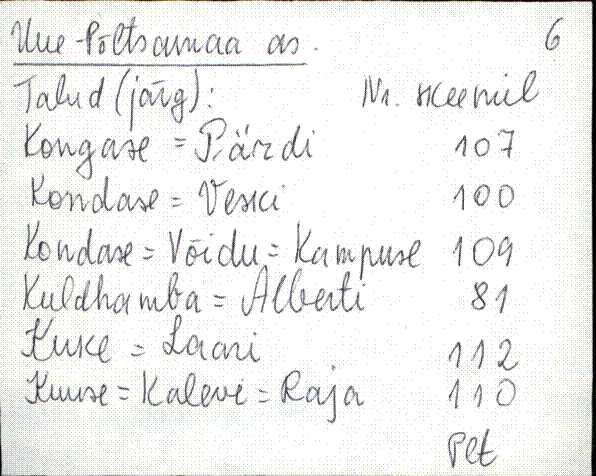 Uue-Põltsamaa as. 6
Talud (järg): Nr. skeemil
Kongase = Pärdi 107
Kondase = Veski 100
Kondase = Võidu = Kampuse 109
Kuldhamba = Alberti 81
Kuke = Laari 112
Kuuse = Kalevi = Raja 110
Plt